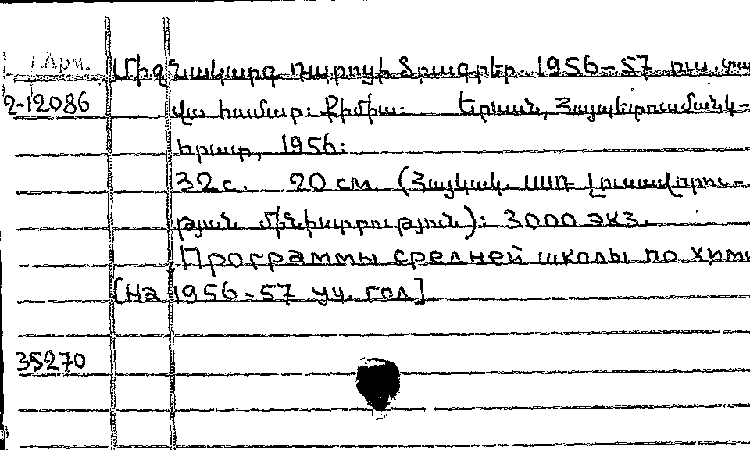 Միջնակարգ դպրոցի ծրագրեր. 1956-57 ուս. տա
2-12086 վա համար: Քիմիա: Երևան, Հայպետուսմանկ-
հրատ, 1956:
32 с. 20 см. (Հայկակ. ՍՍՌ Լուսավորու-
թյան մինիստրություն): 3000 экз.
Программы средней школы по хими
[на 1956-57 уч. год]
35270